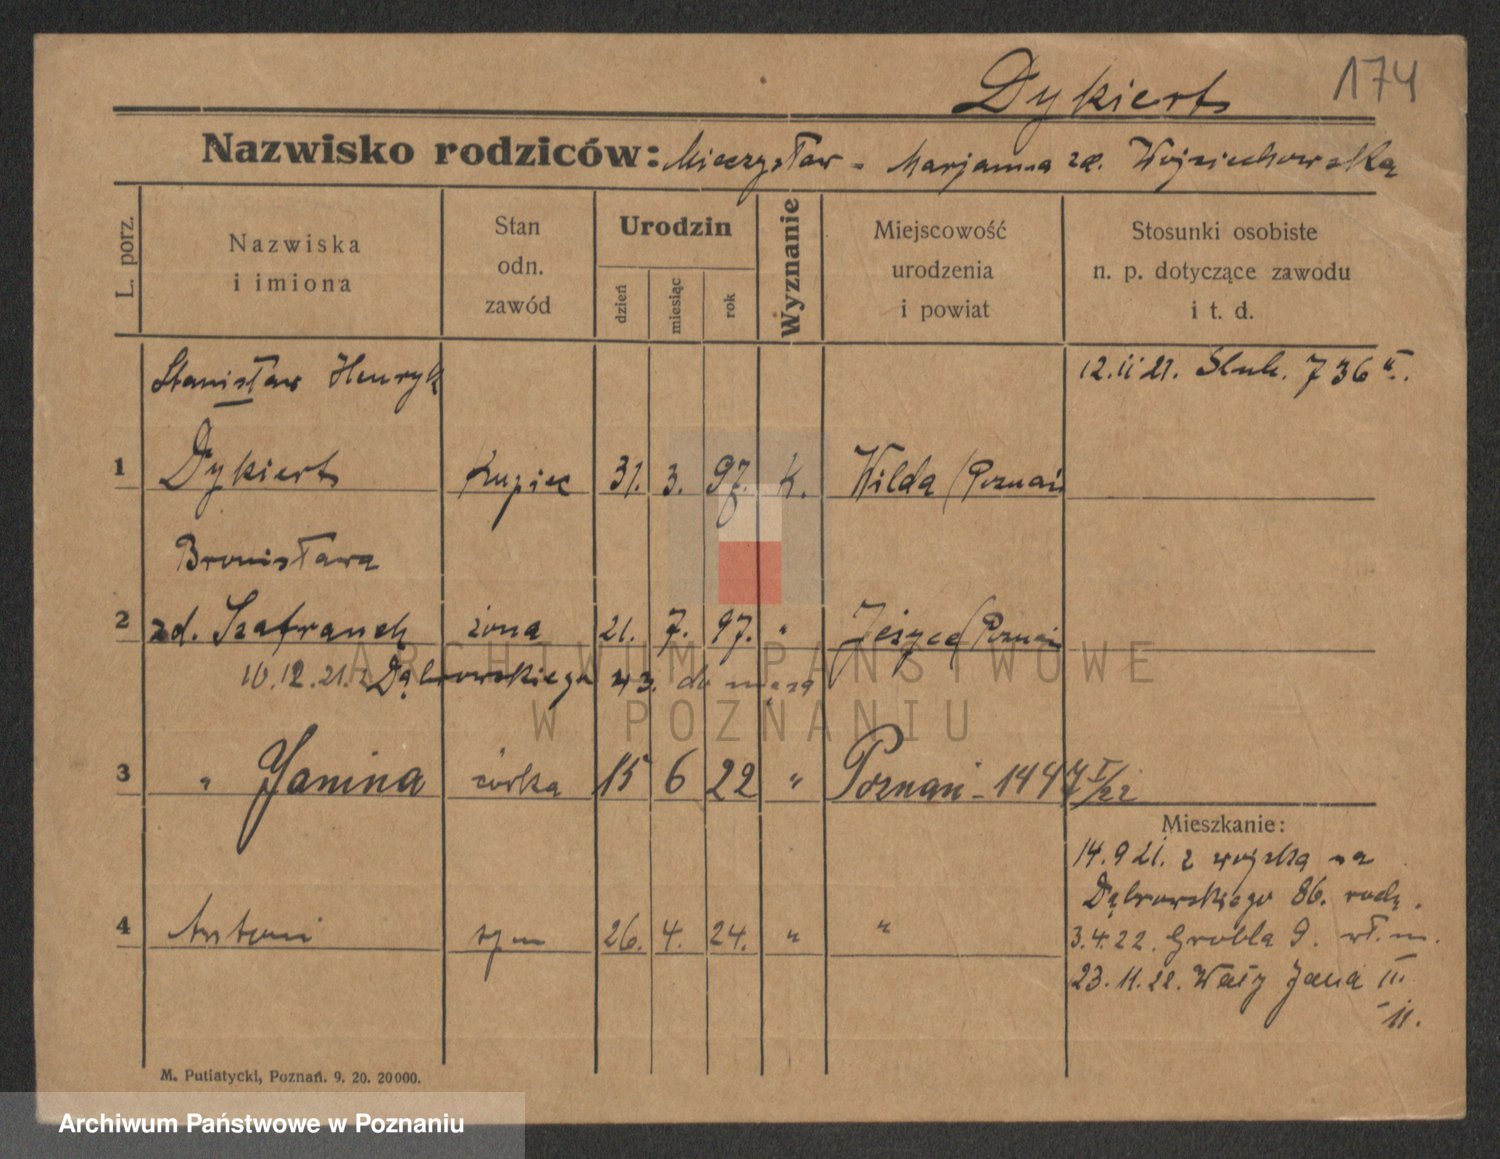 Dykiert 174
Nazwisko rodziców: Mieczysław - Marjanna zd. Wojciechowska
L. porz.
Nazwiska i imiona
Stan odn. zawód
Urodzin
dzień miesiąc rok
Wyznanie
Miejscowość urodzenia i powiat
Stosunki osobiste n. p. dotyczące zawodu i t. d.
Stanisław Henryk 12.11 21. Slub. 736 II.
1 Dykiert Kupiec 31. 3. 97. K. Wilda (Poznań
Bronisława
2 zd. Szafranek żona 21. 7. 97. " Jeżyce (Poznań
10.12.21. z Dąbrowskiego 43. do męża
3 " Janina córka 15 6 22 " Poznań - 1447 I/22
Mieszkanie:
14.9 21. z wojska na
Dąbrowskiego 86. rodz.
4 Antoni syn 26. 4. 24. " "
3.4.22. Grobla 9. wł. m.
23.11.22. Wały Jana III
11.
M. Putiatycki, Poznań. 9. 20. 20000.
ARCHIWUM PAŃSTWOWE
W POZNANIU
Archiwum Państwowe w Poznaniu